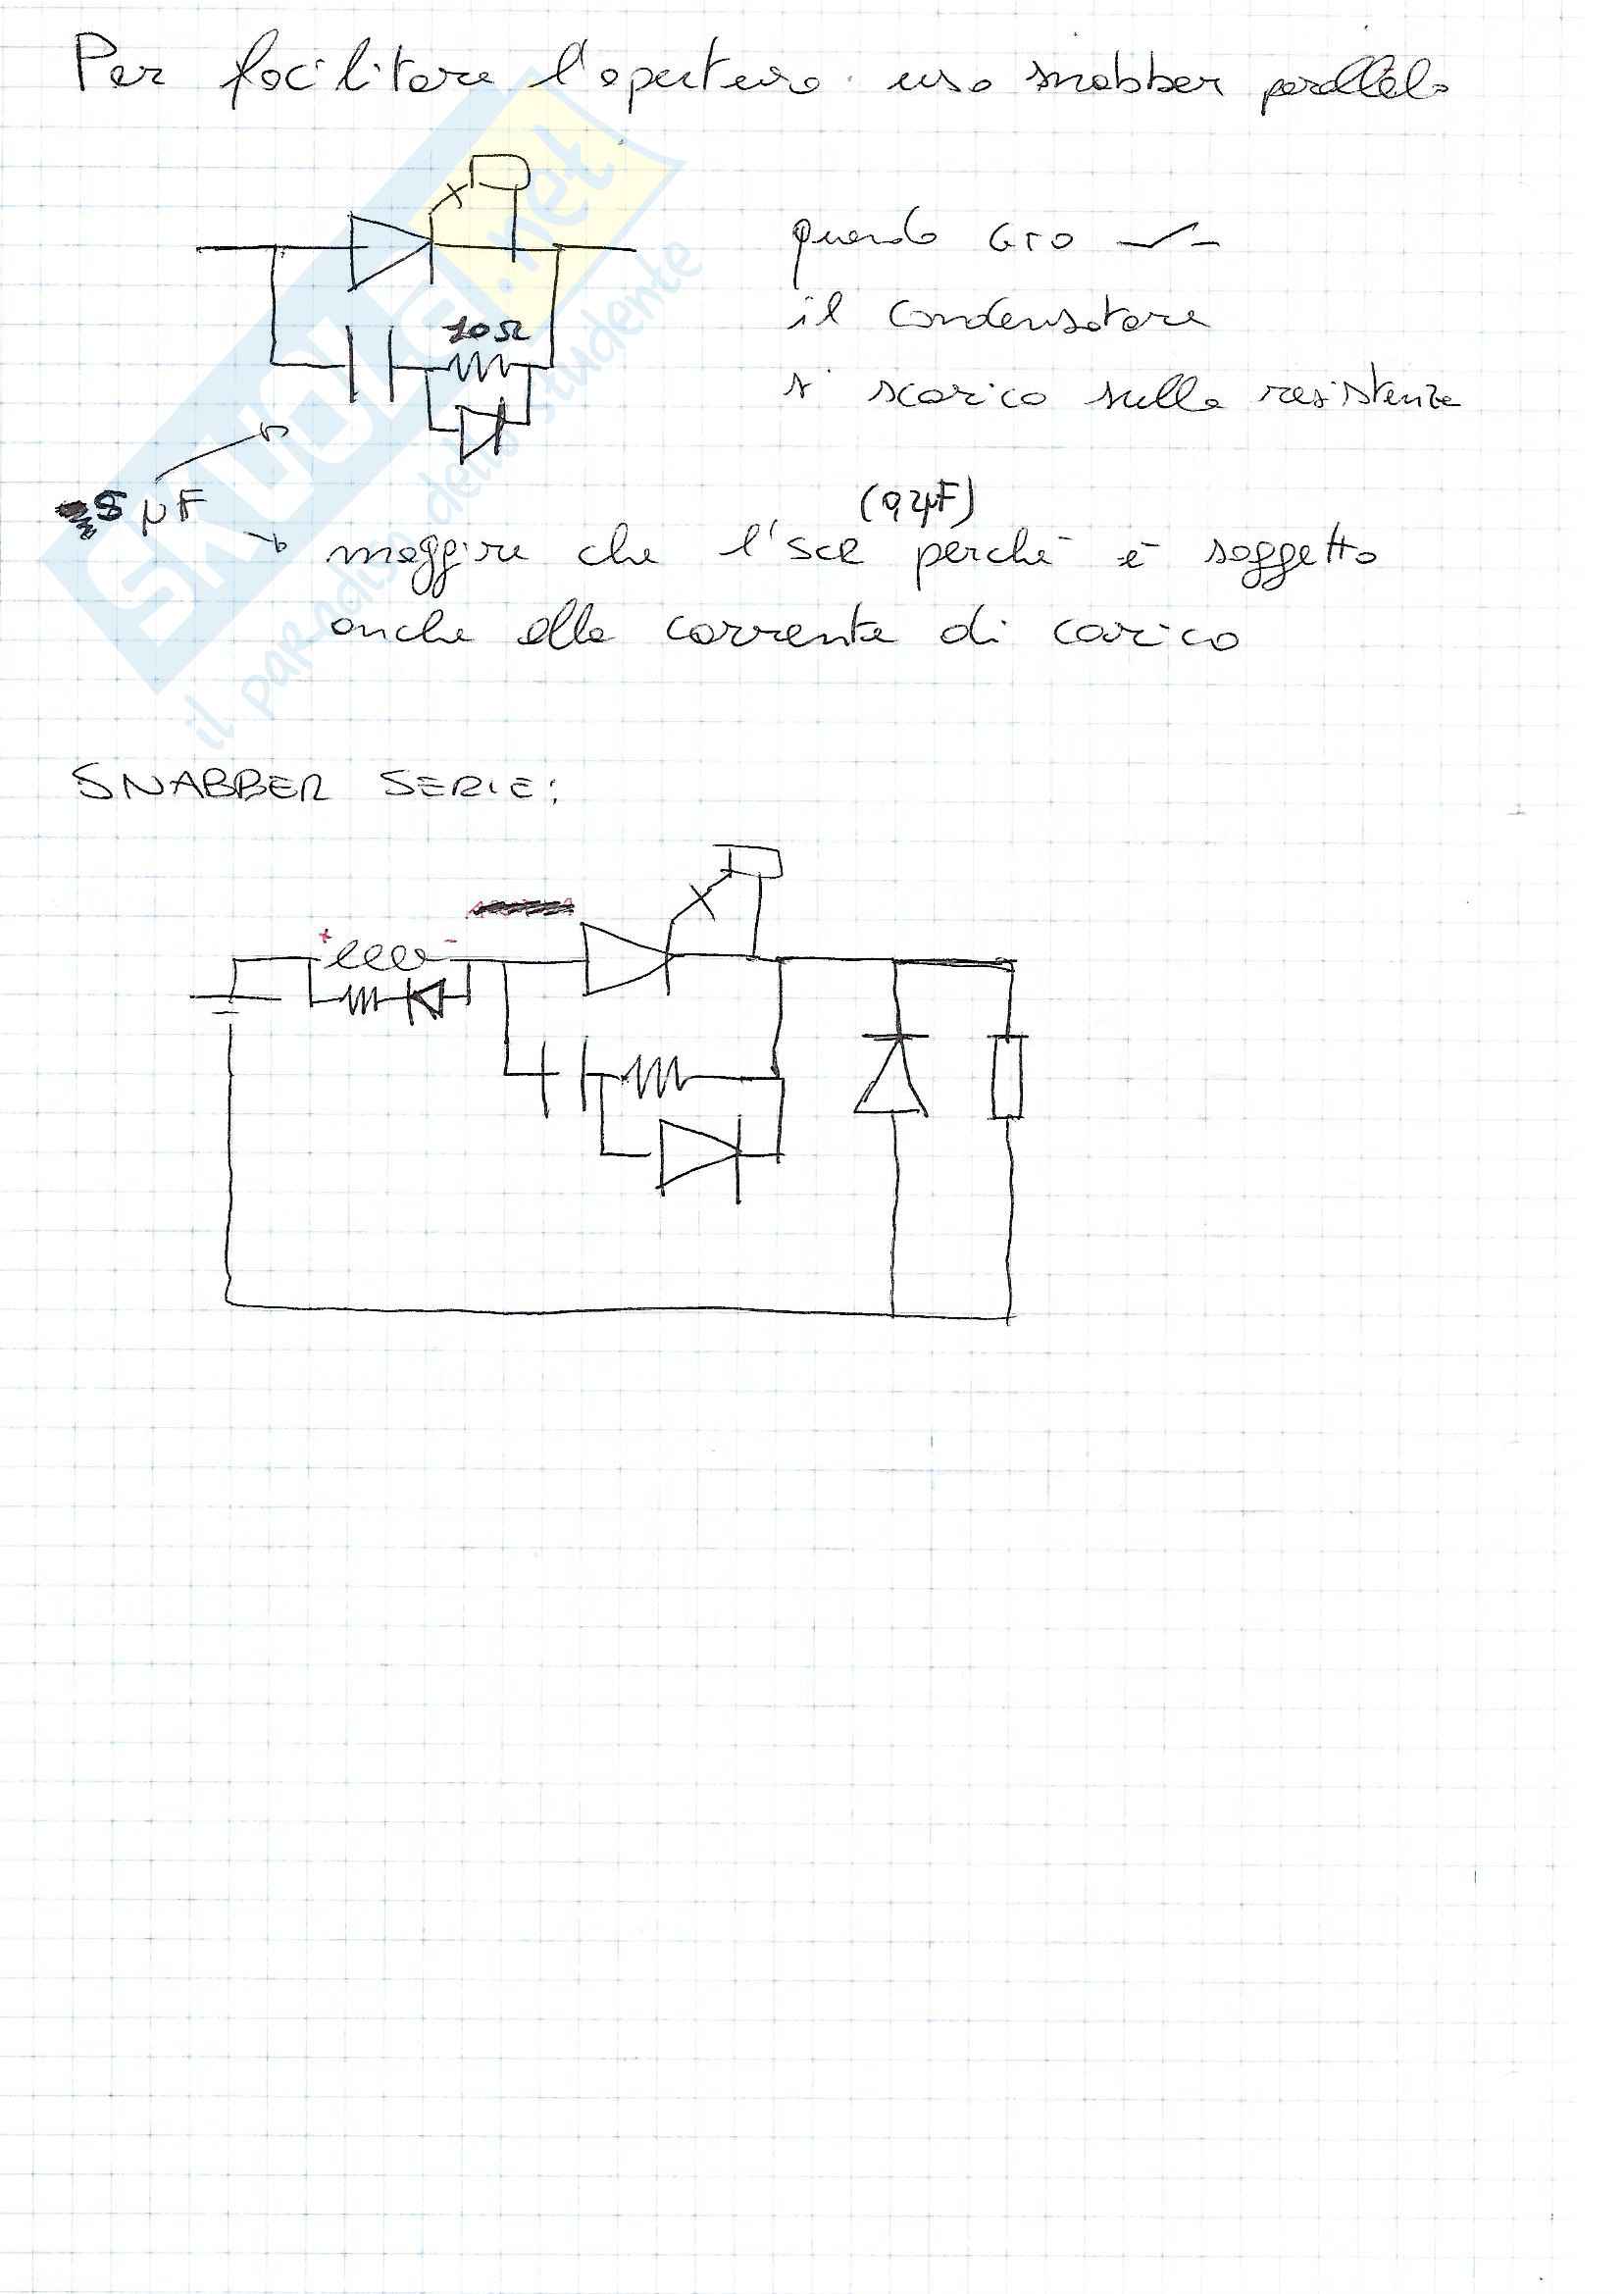 Per facilitare l'apertura uso snabber parallelo
quando GTO
il condensatore
si scarica sulla resistenza
10Ω
5 μF
(0,2μF)
maggire che l'SCR perché è soggetto
anche alla corrente di carico
SNABBER SERIE:
+ -
SKUOLA.net
il paradiso dello studente